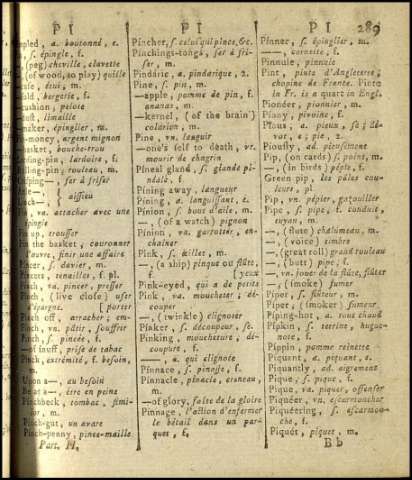 PI
PI
PI
289
pled, a. boutonné, e.
s. épingle, f.
(peg) cheville, clavette
(of wood, to play) quille
m.
bergerie, f.
pelote
limaille
maker, épinglier, m.
money, argent mignon
basket, bouche-trou
lardoire, f.
rouleau, m.
far à friser
aissieu
va. attacher avec une
épingle
up, trousser
the basket, couronner
l'œuvre, finir une affaire
s. davier, m.
tenailles, f. pl.
va. pincer, presser
(live close) user
d'épargne. [porter
off, arracher, em-
vn. pâtir, souffrir
s. pincée, f.
of snuff, prise de tabac
extrémité, f. besoin,
m.
Upon a—, au besoin
be at a—, être en peine
Pinchbeck, tombac, simi-
lor, m.
Pinch-gut, un avare
Pinch-penny, pince-maille
Part. II.
Pincher, s. celui qui pince, &c.
Pinching-tongs, fer à fri-
ser, m.
Pindaric, a. pindarique, 2.
Pine, s. pin, m.
—apple, pomme de pin, f.
ananas, m.
—kernel, (of the brain)
m.
Pine, vn. languir
—one's self to death, vr.
mourir de chagrin
Pineal gland, s. glande pi-
f.
Pining away, langueur
Pining, a. languissant, e.
Pinion, s. bout d'aile, m.
—, (of a watch) pignon
Pinion, va. garrotter, en-
chaîner
Pink, s. œillet, m.
—, (a ship) pinque ou flûte,
f. [yeux
Pink-eyed, qui a de petits
Pink, va. moucheter; dé-
couper
—, (twinkle) clignoter
Pinker, s. découpeur, se.
Pinking, moucheture; dé-
coupure, f.
—, a. qui clignote
Pinnace, s. pinasse, f.
Pinnacle, pinacle, creneau,
m.
—of glory, faîte de la gloire
Pinnage, l'action d'enfermer
le bétail dans un par-
quet, f.
Pinner, s. épinglier, m.
—, cornette, f.
Pinnule, pinnule
Pint, pinte d'Angleterre;
chopine de France. Pinte
in Fr. is a quart in Engl.
Pioneer, pionnier, m.
Piony, pivoine, f.
Pious, a. pieux, se; dé-
vot, e; pie, 2.
Piously, ad. pieusement
Pip, (on cards) s. point, m.
—, (in birds) pépie, f.
Green pip, les pâles cou-
leurs, pl.
Pip, vn. pépier, gazouiller
Pipe, s. pipe, f. conduit,
tuyau, m.
—, (flute) chalumeau, m.
—, (voice) timbre
—, (great roll) grand rouleau
—, (butt) pipe, f.
—, vn. jouer de la flûte, flûter
—, (smoke) fumer
Piper, s. flûteur, m.
Piper, (smoker) fumeur
Piping-hot, a. tout chaud
Pipkin, s. terrine, hugue-
note, f.
Pippin, pomme reinette
Piquant, a. piquant, e.
Piquantly, ad. aigrement
Pique, s. pique, f.
Pique, va. piquer, offenser
Piqueer, vn. escarmoucher
Piqueering, s. escarmou-
che, f.
Piquet, piquet, m.
Bb